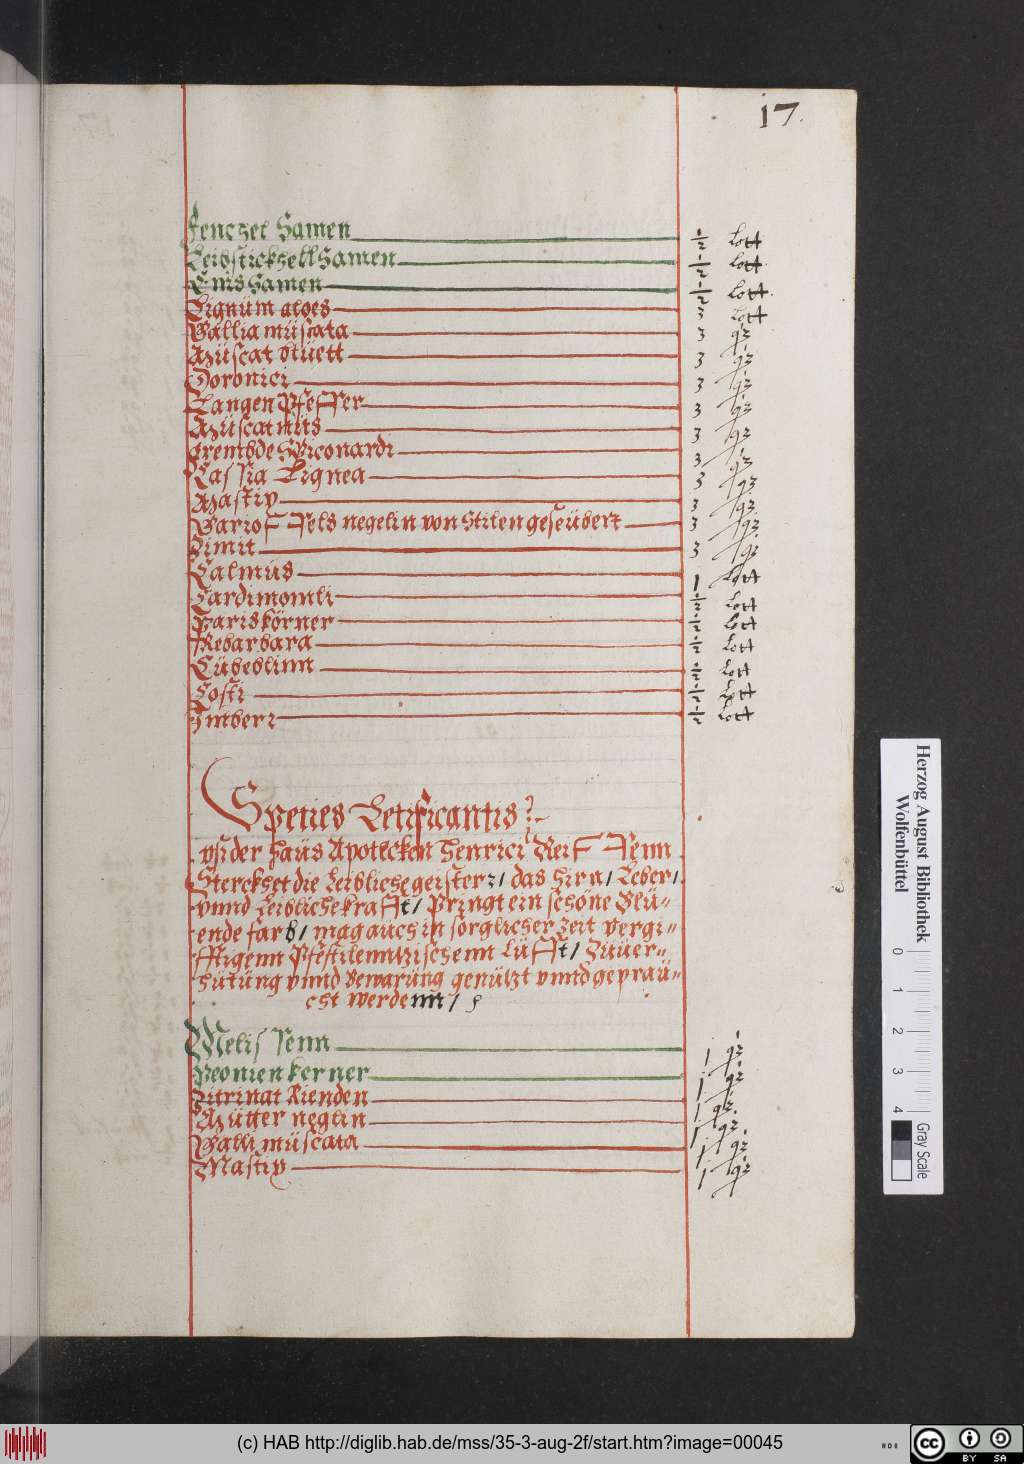 17.
Fenczel Samen ½ Lott
Leibstickhell Samen ½ Lott
Enis Samen ½ Lott
Lignüm aloes 3 Lott
Gallia müscata 3 qz
Müscat blüett 3 qz
Doronici 3 qz
Langen Pfeffer 3 qz
Müscatnüs 3 qz
frembde Spiconardi 3 qz
Cassia Lignea 3 qz
Mastix 3 qz
Gariofels negelin von Stilen geseübert 3 qz
Zimit 3 qz
Calmüs 1 Lott
Cardimomli ½ Lott
Pariskörner ½ Lott
Rebarbara ½ Lott
Cübeblinn ½ Lott
Costi ½ Lott
Imberz ½ Lott
Species Letificantis
vß der Haüs Apotecken Henrici Reiffenn
Sterckhet die Leibliche geister / das hirn / Leber /
vnnd Leibliche krafft / Pringt ein schöne Blü-
ende farb / mag auch in sorglicher Zeit vergi-
fftigenn Pfestilenntzischenn Lüfft / Zuüer-
hütüng vnnd Bewarüng genützt vnnd gepraü-
cht werdenn /
Melissenn 1 qz
Peonien kerner 1 qz
Zitrinat Rienden 1 qz
Mütter neglin 1 qz
Galli müscata 1 qz
Mastix 1 qz
Herzog August Bibliothek
Wolfenbüttel
0 1 2 3 4
Gray Scale
(c) HAB http://diglib.hab.de/mss/35-3-aug-2f/start.htm?image=00045
cc BY SA